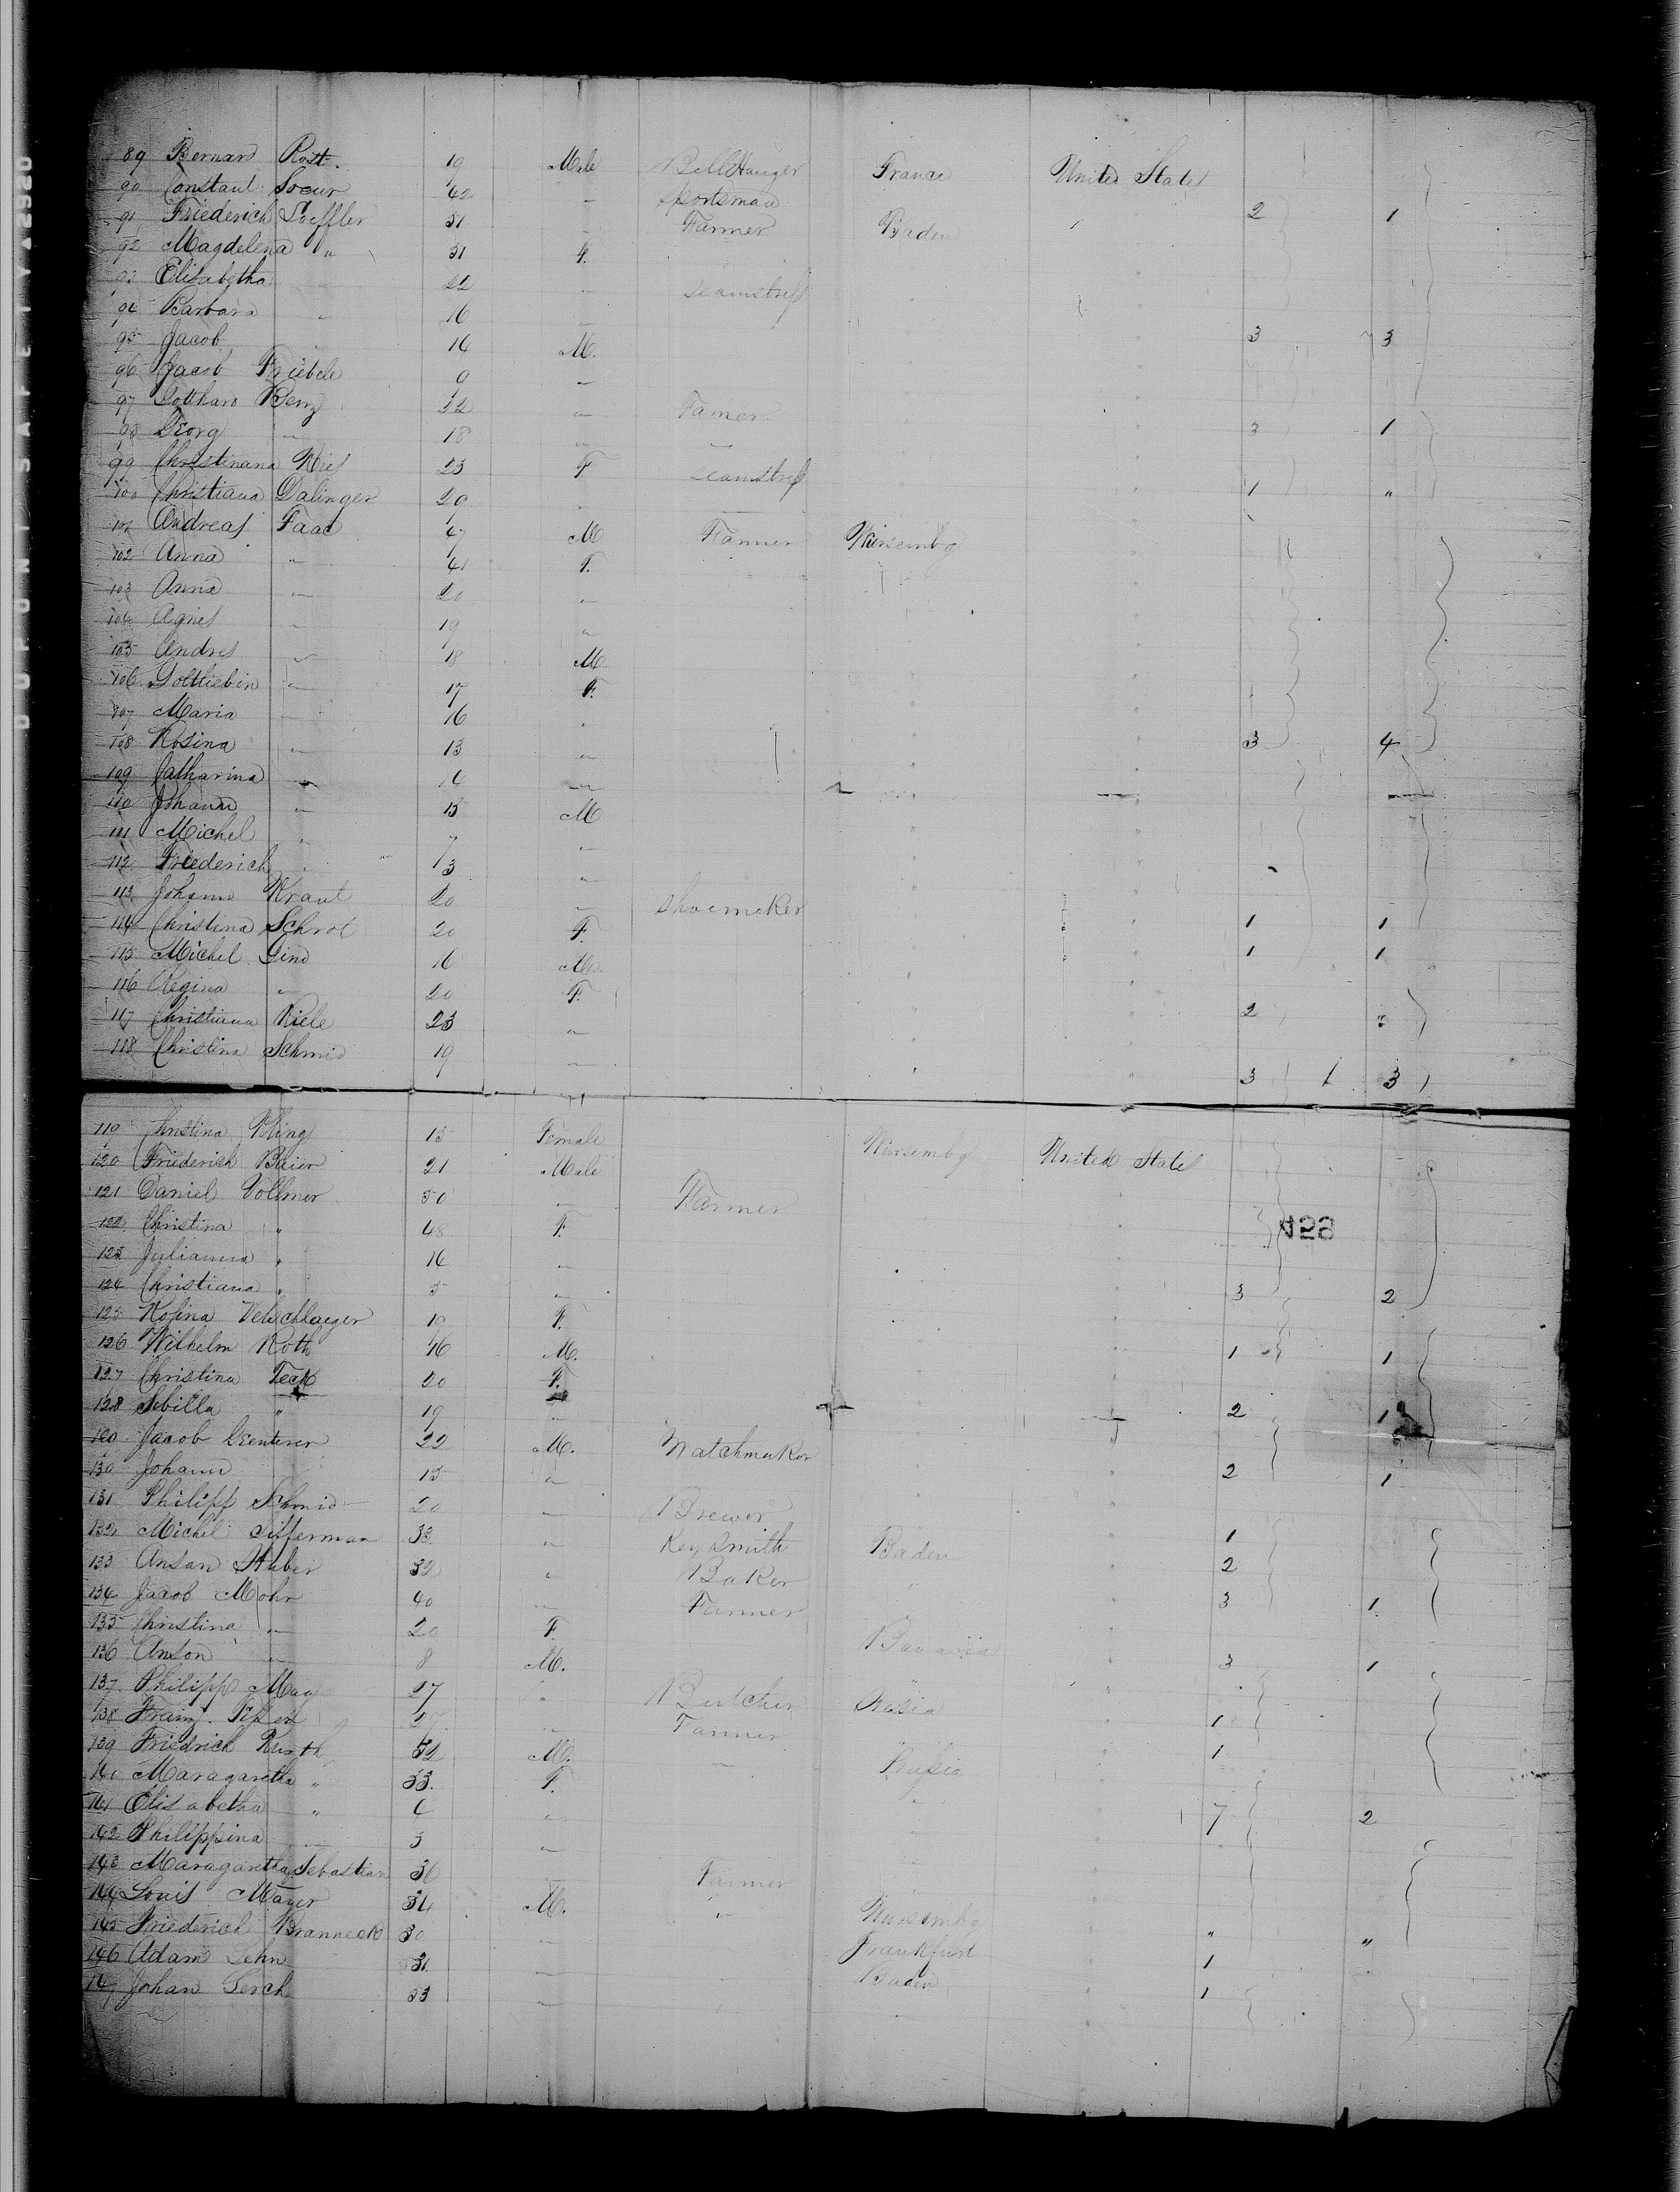 89 Bernard Rott 19 Male Bell Hanger France United States
90 Constant Soeur 42 " Sportsman
91 Friederich Loeffler 31 " Farmer Baden 2 1
92 Magdelena " 31 F.
93 Elisabetha " 22 " Seamstress
94 Barbara " 16 "
95 Jacob 14 M. 3 3
96 Jacob Friebele 9 "
97 Gotthard Benz 22 " Famer
98 Georg " 18 " 3 1
99 Christinana Ries 23 F Seamstress
100 Christiana Dalinger 29 " 1 "
101 Andreas Faac 47 M Farmer Wirtembg
102 Anna " 41 F.
103 Anna " 20 "
104 Agnes " 19 "
105 Andres " 18 M
106 Gottliebin " 17 F.
107 Maria " 16 "
108 Rosina " 13 " 3 4
109 Catharina " "
110 Johann " 15 M
111 Michel " 7 "
112 Friederich " 3 "
113 Johann Kraut 20 " Shoemaker
114 Christina Schrot 20 F. 1 1
115 Michel Gind 16 M. 1 1
116 Regina " 20 F.
117 Christiana Kiele 23 " 2 "
118 Christina Schmid 19 " 3 1 3
119 Christina Kling 15 Female Wirtembg United States
120 Friederich Baier 21 Male
121 Daniel Vollmer 50 " Farmer
122 Christina " 48 F.
123 Julianna " 16 "
124 Christiana " 5 " 3 2
125 Rosina 19 F.
126 Wilhelm Roth 46 M. 1 1
127 Christina Teck 20 F.
128 Sibilla " 19 " 2 1
129 Jacob 22 M. Watchmaker
130 Johann 15 " 2 1
131 Philipp Schmid 20 " Brewer
132 Michel Sifferman 33 " Key Smith Baden 1
133 Huber 32 " Baker " 2
134 Jacob Mohr 40 " Farmer 3 1
135 Christina " 20 F. Bavaria
136 Anton " 8 M. 3 1
137 Philipp May 27 " Butcher
138 Franz 27 " Farmer 1
139 Friedrich Kurth 52 M. " 1
140 Maragaretha " 33 F.
141 Elisabetha " 6 " 7 2
142 Philippina " 3 "
143 Maragaretha Sebastian 36 " Farmer
144 Louis Mayer 34 M. " Wirtembg
145 Friederich Branneck 30 " Frankfurt " "
146 Adam Lehn 31 " Baden 1
147 Johan Lerch 33 " 1
459